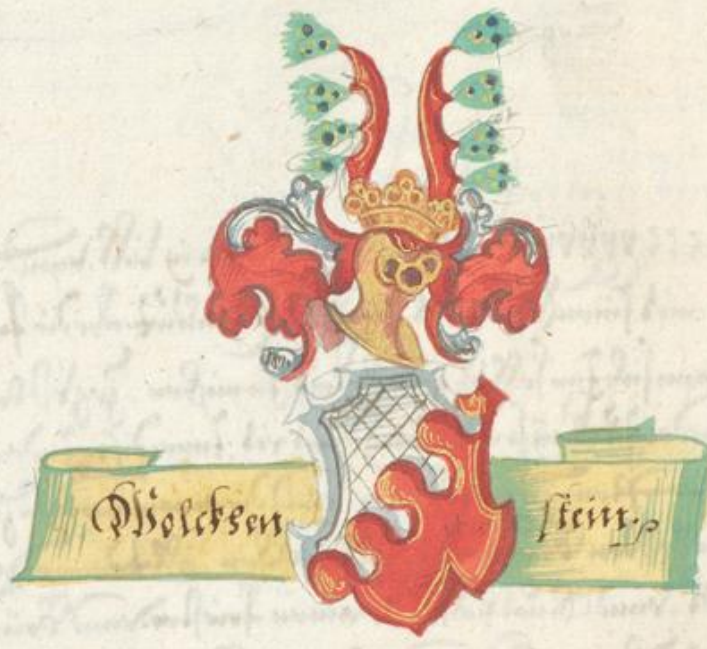 Wolcksen stein.